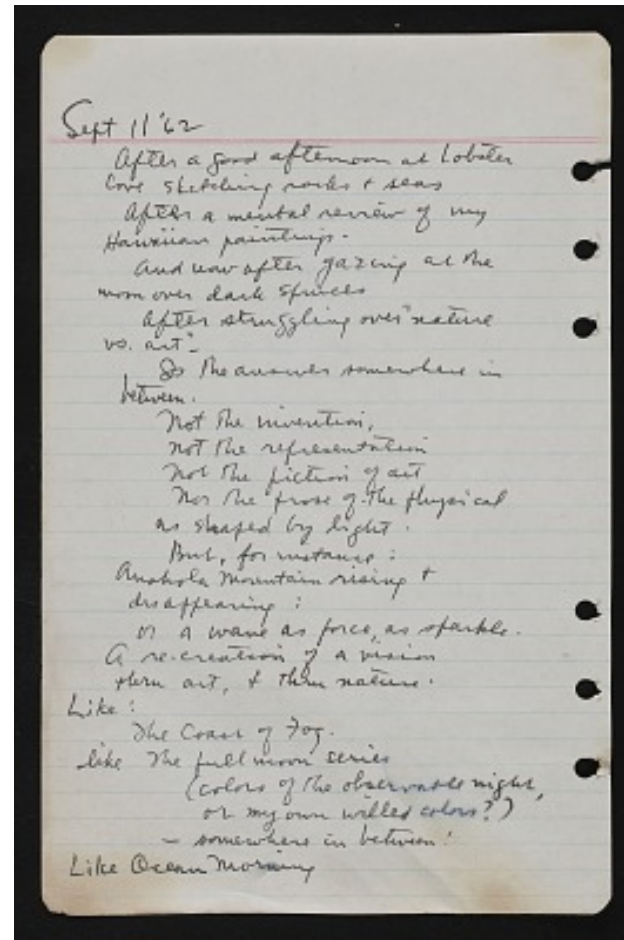 Sept 11 '62
After a good afternoon at Lobster
Cove sketching rocks + seas
After a mental review of my
Hawaiian paintings.
And now after gazing at the
moon over dark spruces
After struggling over "nature
vs. art"-
Is the answer somewhere in
between.
Not the invention,
not the representation
Not the fiction of art
Nor the prose of the physical
as shaped by light.
But, for instance:
Anahola Mountain rising +
disappearing:
or a wave as force, as sparkle.
A re-creation of a vision
thru art, + thru nature.
Like:
The Coast of Fog.
like The full moon series
(colors of the observable night,
or my own willed colors?)
- somewhere in between!
Like Ocean Morning